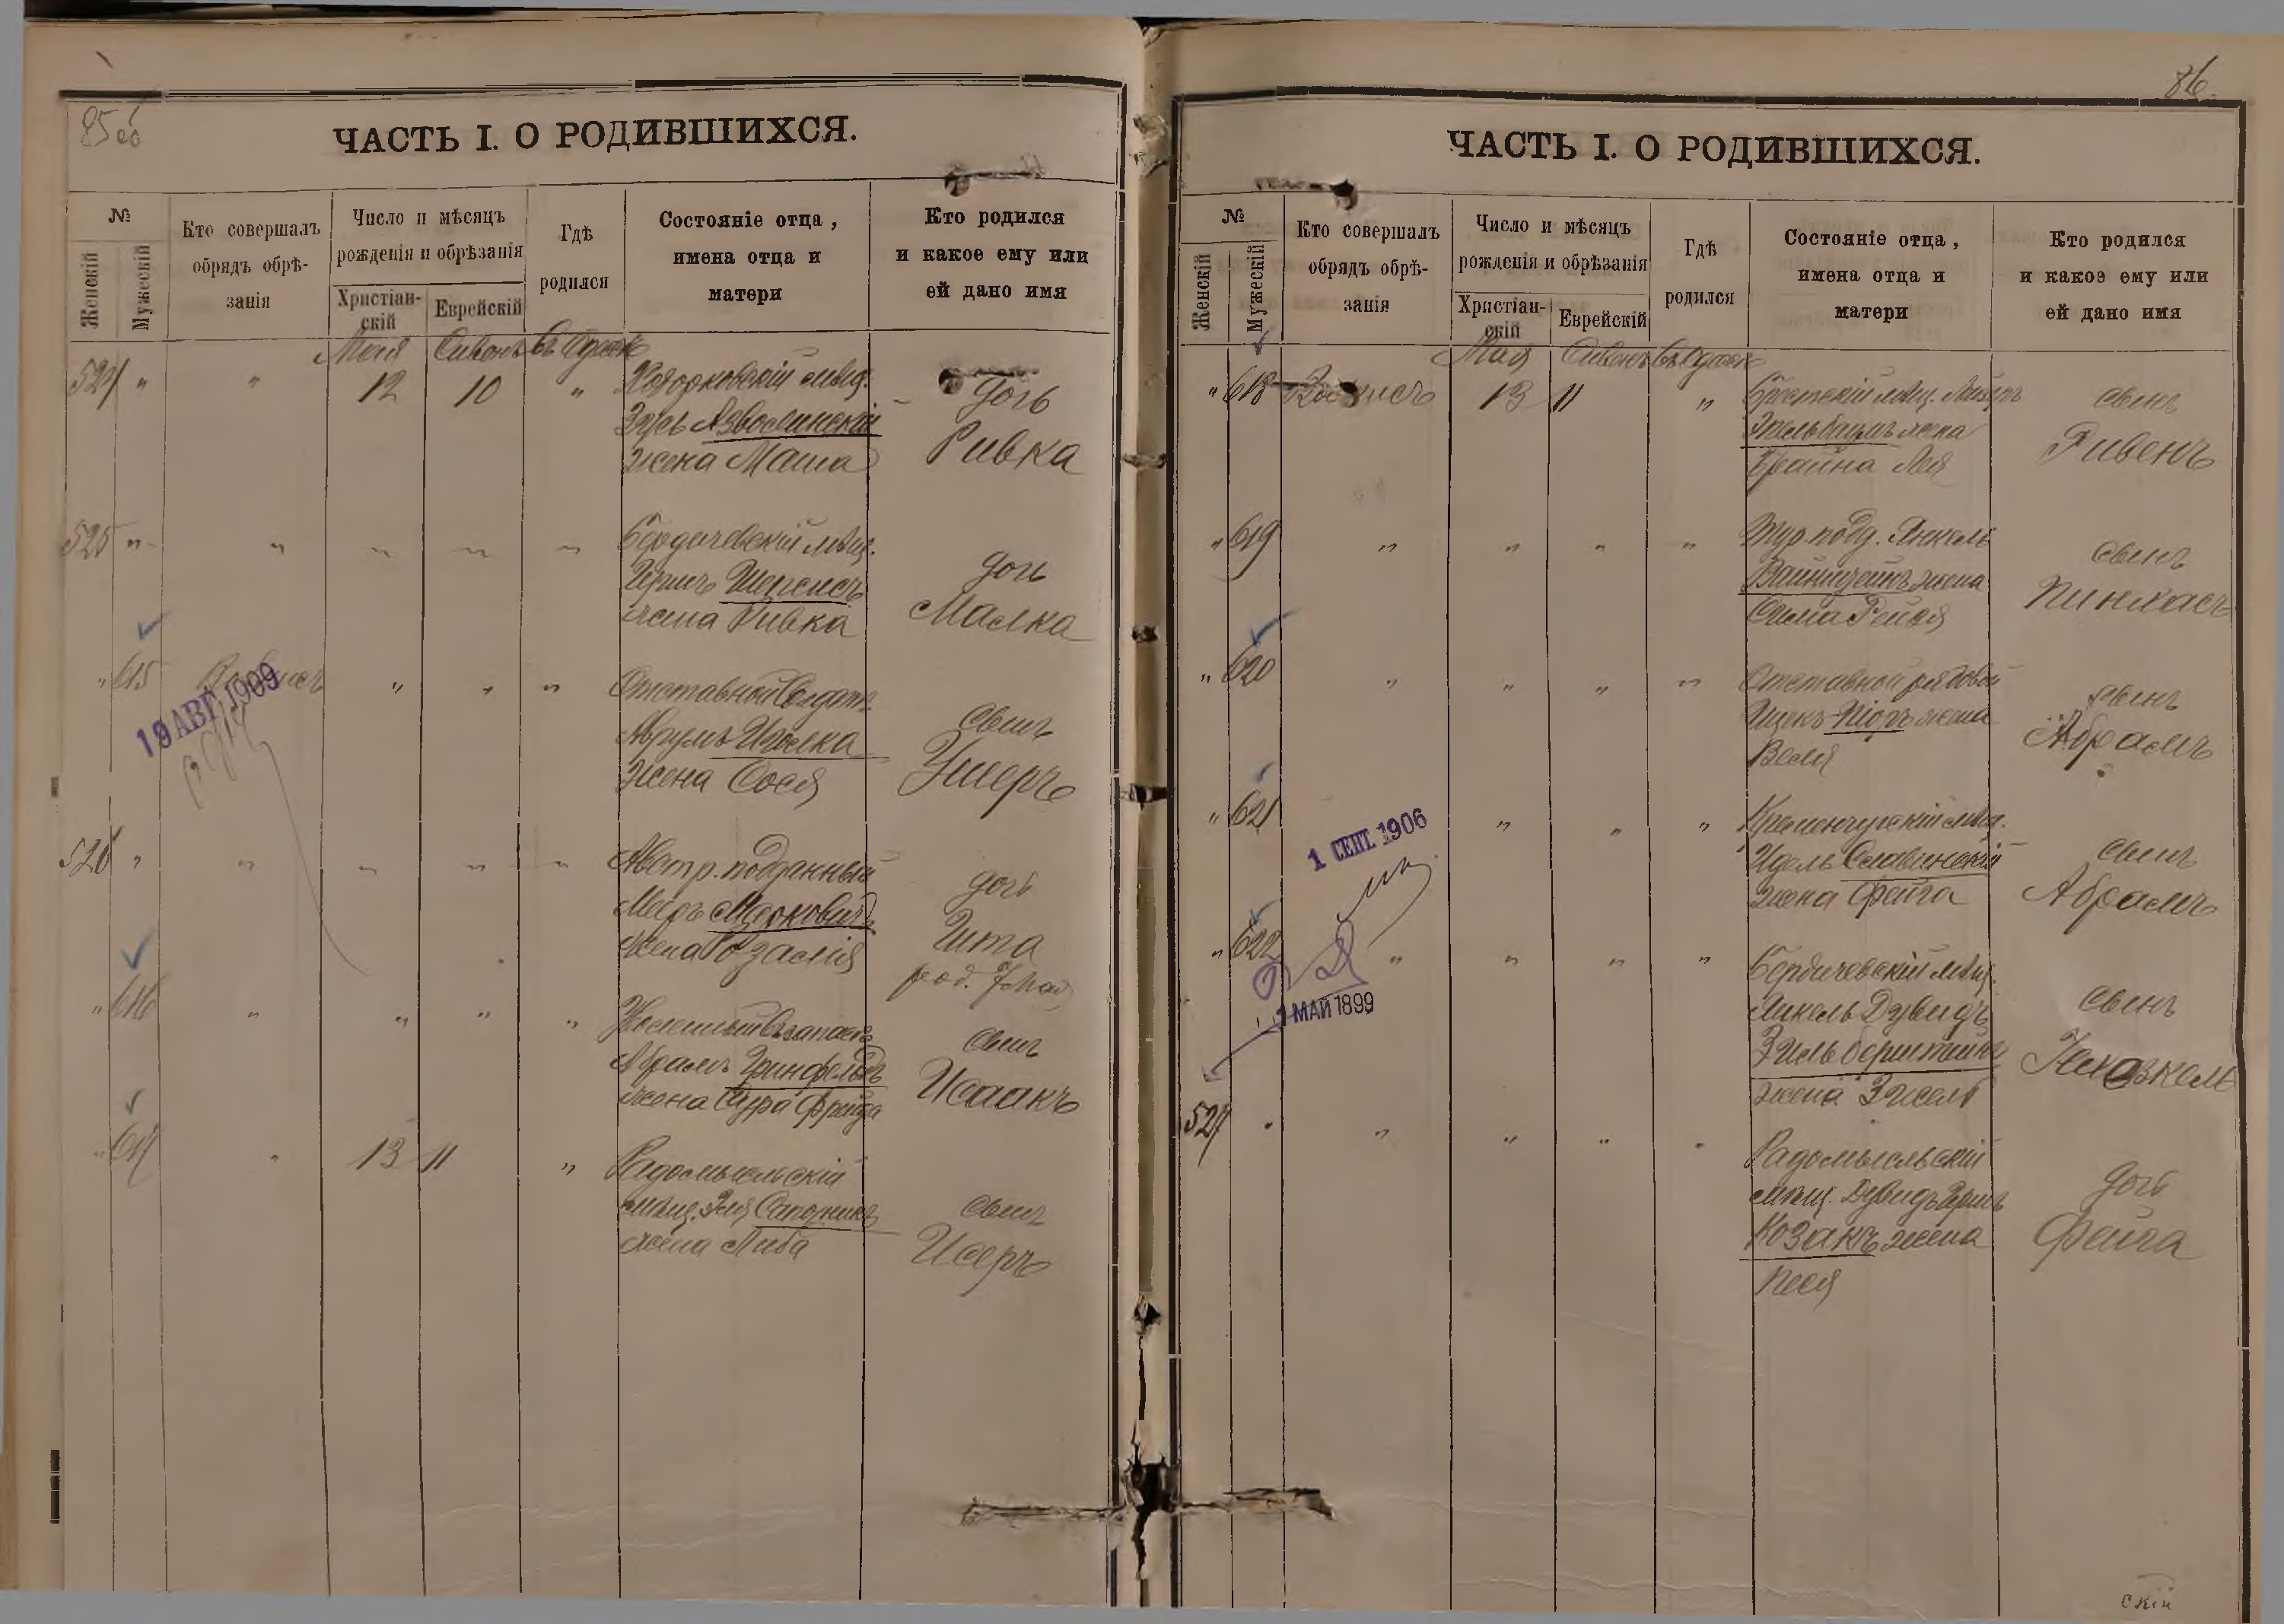 85об
ЧАСТЬ I. О РОДИВШИХСЯ.
№
Женскій
Мужескій
Кто совершалъ
обрядъ обрѣ-
занія
Число и мѣсяцъ
рожденія и обрѣзанія
Христіан-
скій
Еврейскій
Гдѣ
родился
Состояніе отца,
имена отца и
матери
Кто родился
и какое ему или
ей дано имя
Мая Сивонъ въ Одессѣ
524 " " 12 10 "
мѣщ.
Зусь
жена Маша
дочь
Ривка
525 " " " " "
мѣщ.
Гершъ Шепсисъ
жена Ривка
дочь
Малка
" 615 " " "
Отставной
Аврумъ Иголка
жена Сося
сынъ
Ушеръ
19 АВГ 1909
526 " " " " "
Австр. подданный
Мееръ Мерковичъ
жена Розалія
дочь
Гита
род. 7 Мая
" 616 " " " "
Абрамъ Гринфельдъ
жена Сура Фрейда
сынъ
Исаакъ
" 617 " 13 11 "
Радомысльскій
мѣщ. Сапожникъ
жена Либа
сынъ
Исеръ
86.
ЧАСТЬ I. О РОДИВШИХСЯ.
№
Женскій
Мужескій
Кто совершалъ
обрядъ обрѣ-
занія
Число и мѣсяцъ
рожденія и обрѣзанія
Христіан-
скій
Еврейскій
Гдѣ
родился
Состояніе отца,
имена отца и
матери
Кто родился
и какое ему или
ей дано имя
Мая Сивонъ въ Одессѣ
" 618 13 11 "
мѣщ. Лейзеръ
жена
Брайна Лея
сынъ
Рувенъ
" 619 " " " "
Тур. подд. Янкель
Вайнштейнъ жена
Сима Рейзя
сынъ
Пинхасъ
" 620 " " " "
Отставной рядовой
Ицекъ жена
сынъ
Абрамъ
" 621 " " "
Кременчугскій мѣщ.
Идель Славинскій
жена Фейга
сынъ
Абрамъ
1 СЕНТ 1906
" 622 " " " "
Бердичевскій мѣщ.
Янкель Дувидъ
Зильберштейнъ
жена
сынъ
Ихезкель
1 МАЙ 1899
527 " " " " "
Радомысльскій
мѣщ. Дувидъ Гершъ
Козакъ жена
Песя
дочь
Фейга
скій